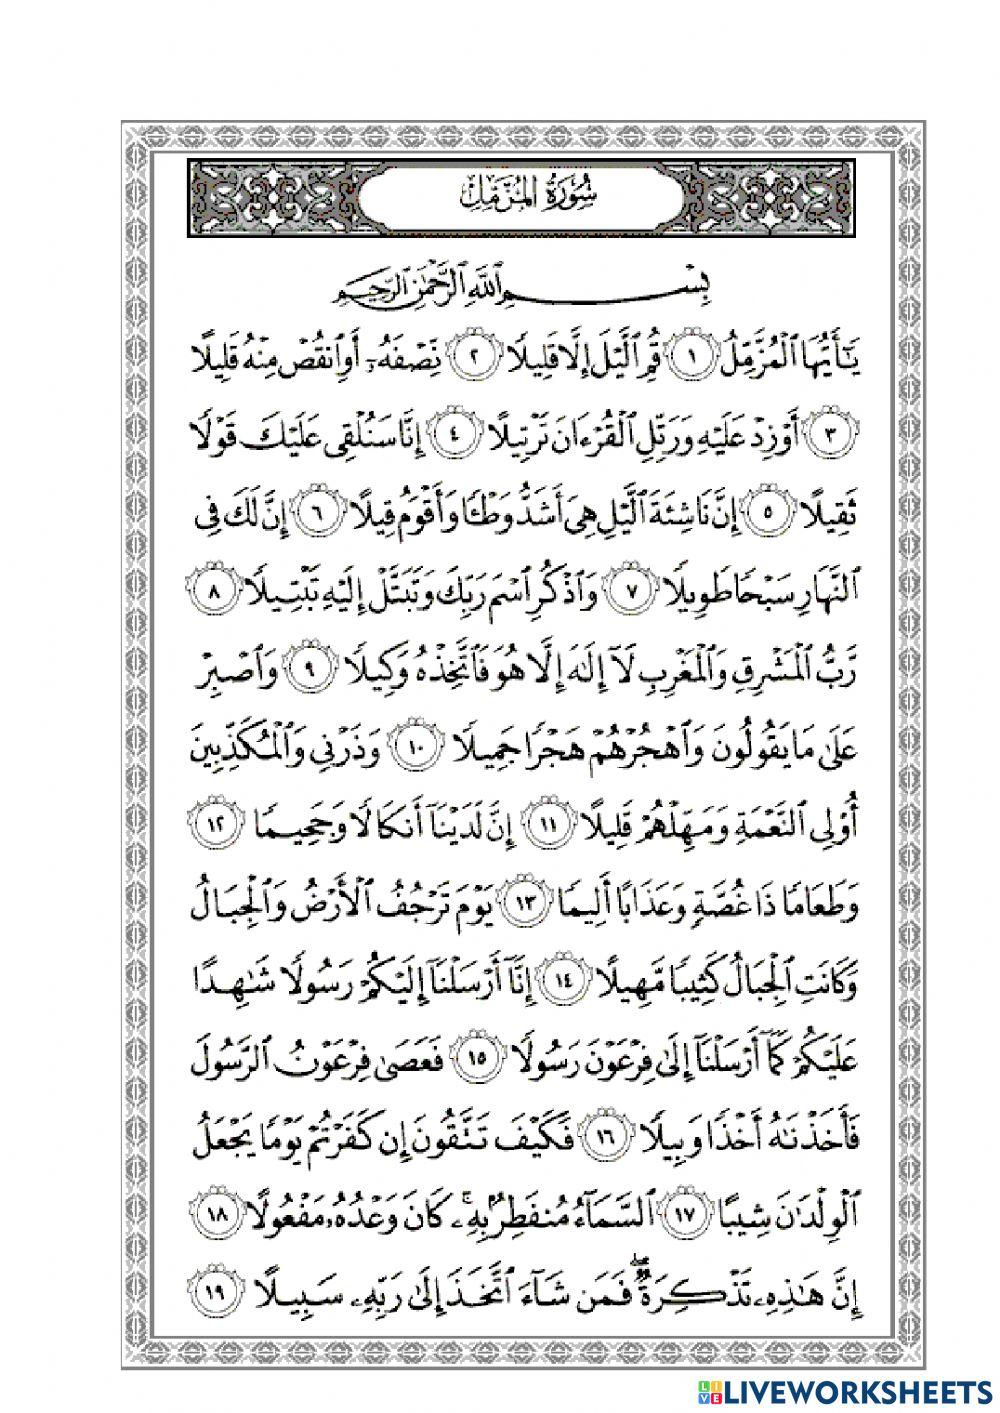 سُورَةُ الْمُزَّمِّلِ
بِسْمِ ٱللَّهِ ٱلرَّحْمَٰنِ ٱلرَّحِيمِ
يَٰٓأَيُّهَا ٱلْمُزَّمِّلُ ١ قُمِ ٱلَّيْلَ إِلَّا قَلِيلًا ٢ نِّصْفَهُۥٓ أَوِ ٱنقُصْ مِنْهُ قَلِيلًا
٣ أَوْ زِدْ عَلَيْهِ وَرَتِّلِ ٱلْقُرْءَانَ تَرْتِيلًا ٤ إِنَّا سَنُلْقِى عَلَيْكَ قَوْلًا
ثَقِيلًا ٥ إِنَّ نَاشِئَةَ ٱلَّيْلِ هِىَ أَشَدُّ وَطْـًٔا وَأَقْوَمُ قِيلًا ٦ إِنَّ لَكَ فِى
ٱلنَّهَارِ سَبْحًا طَوِيلًا ٧ وَٱذْكُرِ ٱسْمَ رَبِّكَ وَتَبَتَّلْ إِلَيْهِ تَبْتِيلًا ٨
رَّبُّ ٱلْمَشْرِقِ وَٱلْمَغْرِبِ لَآ إِلَٰهَ إِلَّا هُوَ فَٱتَّخِذْهُ وَكِيلًا ٩ وَٱصْبِرْ
عَلَىٰ مَا يَقُولُونَ وَٱهْجُرْهُمْ هَجْرًا جَمِيلًا ١٠ وَذَرْنِى وَٱلْمُكَذِّبِينَ
أُو۟لِى ٱلنَّعْمَةِ وَمَهِّلْهُمْ قَلِيلًا ١١ إِنَّ لَدَيْنَآ أَنكَالًا وَجَحِيمًا ١٢
وَطَعَامًا ذَا غُصَّةٍ وَعَذَابًا أَلِيمًا ١٣ يَوْمَ تَرْجُفُ ٱلْأَرْضُ وَٱلْجِبَالُ
وَكَانَتِ ٱلْجِبَالُ كَثِيبًا مَّهِيلًا ١٤ إِنَّآ أَرْسَلْنَآ إِلَيْكُمْ رَسُولًا شَٰهِدًا
عَلَيْكُمْ كَمَآ أَرْسَلْنَآ إِلَىٰ فِرْعَوْنَ رَسُولًا ١٥ فَعَصَىٰ فِرْعَوْنُ ٱلرَّسُولَ
فَأَخَذْنَٰهُ أَخْذًا وَبِيلًا ١٦ فَكَيْفَ تَتَّقُونَ إِن كَفَرْتُمْ يَوْمًا يَجْعَلُ
ٱلْوِلْدَٰنَ شِيبًا ١٧ ٱلسَّمَآءُ مُنفَطِرٌۢ بِهِۦ ۚ كَانَ وَعْدُهُۥ مَفْعُولًا ١٨
إِنَّ هَٰذِهِۦ تَذْكِرَةٌ ۖ فَمَن شَآءَ ٱتَّخَذَ إِلَىٰ رَبِّهِۦ سَبِيلًا ١٩
LIVE LIVEWORKSHEETS